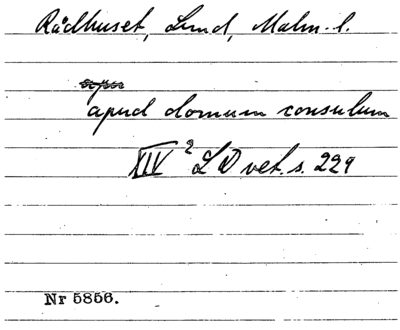 Rådhuset, Lund, Malm. l.
apud domum consulum
XIV² L D vet. s. 229
Nr 5856.